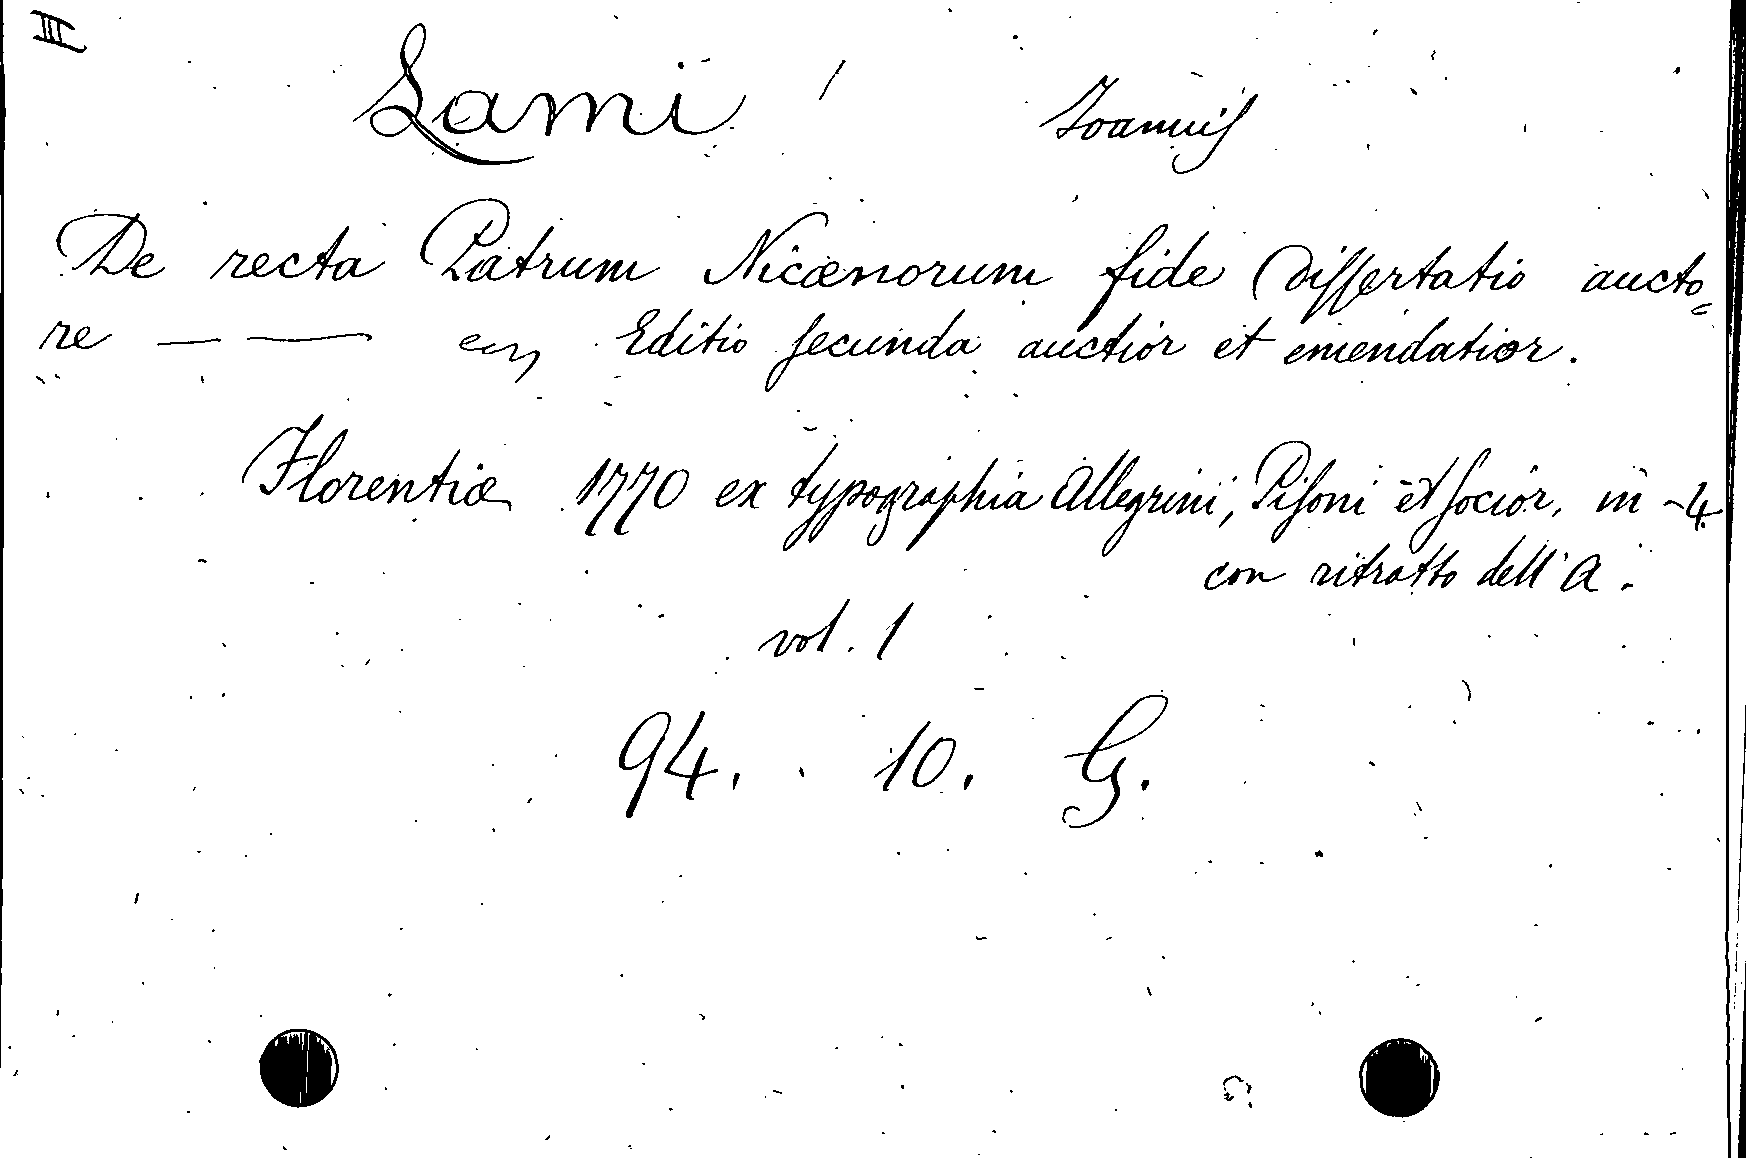 III
Lami Joannis
De recta Patrum Nicænorum fide Dissertatio aucto=
re — — ec, Editio secunda auctior et emendatior.
Florentiæ 1770 ex typographia Allegrini, Pisoni et socior. in -4.
con ritratto dell'A.
vol. 1
94. 10. G.